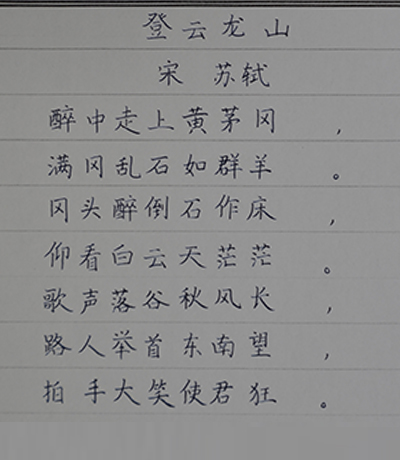 登云龙山
宋 苏轼
醉中走上黄茅冈，
满冈乱石如群羊。
冈头醉倒石作床，
仰看白云天茫茫。
歌声落谷秋风长，
路人举首东南望，
拍手大笑使君狂。